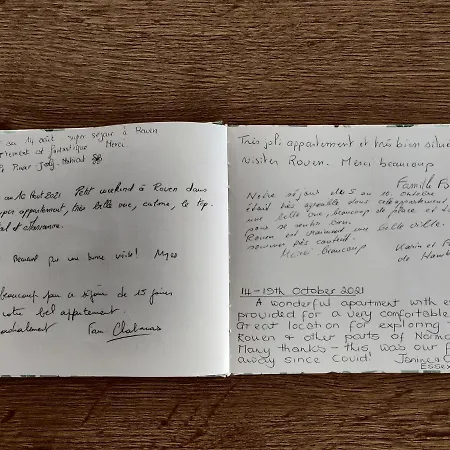 au 14 août super séjour à Rouen
et fantastique Merci.
au 16 Août 2021 Petit weekend à Rouen dans
super appartement, très belle vue, calme, le top.
Myao
beaucoup pour ce séjour de 15 jours
votre bel appartement.
Fam Chabaas
Très joli appartement et très bien situé
visiter Rouen. Merci beaucoup
Famille
Notre séjour du 5 au 10 octobre
était très agréable dans cet appartement
une belle vue, beaucoup de place et
pour se sentir bon.
Rouen est vraiment une belle ville.
sommes très contents.
Merci beaucoup
Karin et
de Hamb
14-19th October 2021
A wonderful apartment with e
provided for a very comfortable
Great location for exploring
Rouen & other parts of Norm
Many thanks - this was our f
away since Covid! Janine
Essex